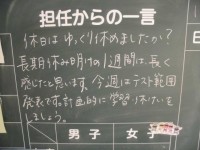 担任からの一言
休日はゆっくり休めましたか?
長期休み明けの1週間は、長く
感じたと思います。今週はテスト範囲
発表です。計画的に学習
しましょう。
男子 女子